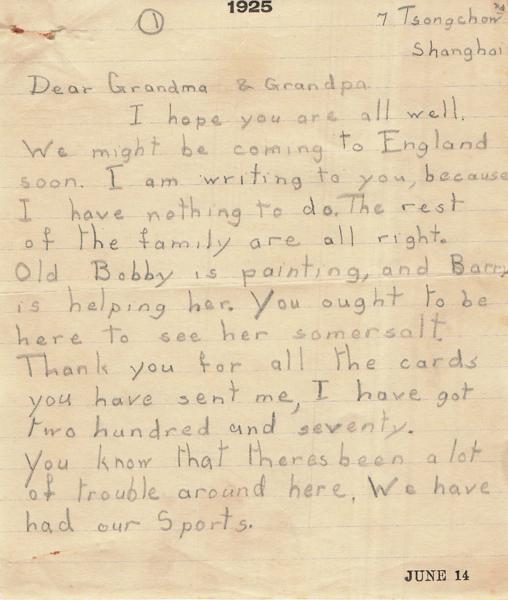 1925
1
7 Tsongchow Rd
Shanghai
Dear Grandma & Grandpa
I hope you are all well.
We might be coming to England
soon. I am writing to you, because
I have nothing to do. The rest
of the family are all right.
Old Bobby is painting, and Barry
is helping her. You ought to be
here to see her somersalt.
Thank you for all the cards
you have sent me, I have got
two hundred and seventy.
You know that theres been a lot
of trouble around here. We have
had our Sports.
JUNE 14